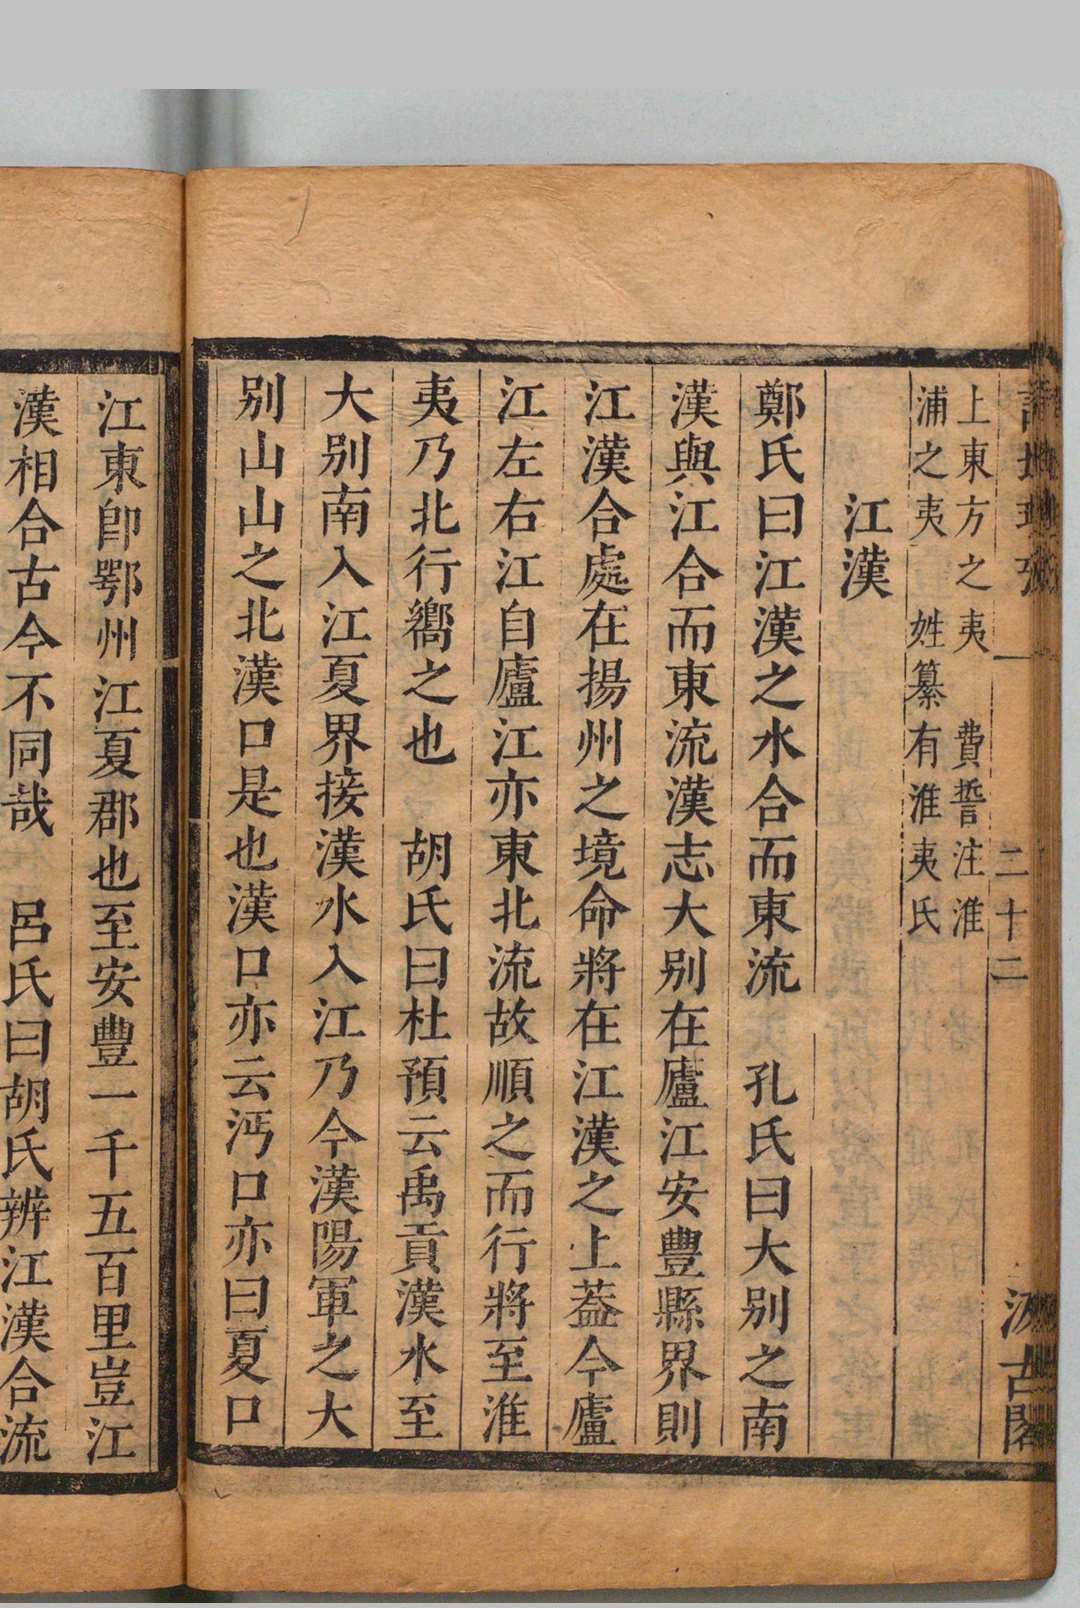 詩地理攷 二十二 汲古閣
上東方之夷 費誓注淮
浦之夷 姓纂有淮夷氏
江漢
鄭氏曰江漢之水合而東流 孔氏曰大别之南
漢與江合而東流漢志大别在廬江安豐縣界則
江漢合處在揚州之境命將在江漢之上葢今廬
江左右江自廬江亦東北流故順之而行將至淮
夷乃北行嚮之也 胡氏曰杜預云禹貢漢水至
大别南入江夏界接漢水入江乃今漢陽軍之大
别山山之北漢口是也漢口亦云沔口亦曰夏口
江東卽鄂州江夏郡也至安豐一千五百里豈江
漢相合古今不同哉 呂氏曰胡氏辨江漢合流